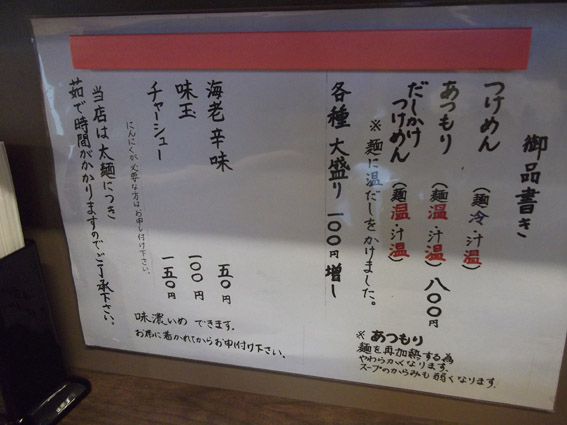 御品書き
つけめん (麺冷・汁温)
あつもり (麺温・汁温) 八〇〇円
だしかけつけめん (麺温・汁温)
※ 麺に温だしをかけました。
各種 大盛り 一〇〇円増し
※ あつもり
麺を再加熱する為
やわらかくなります。
スープのからみも弱くなります。
海老辛味 五〇円
味玉 一〇〇円
チャーシュー 一五〇円
にんにくが必要な方はお申し付け下さい。
味濃いめ できます。
お席に着かれてからお申付け下さい。
当店は太麺につき
茹で時間がかかりますのでご了承下さい。